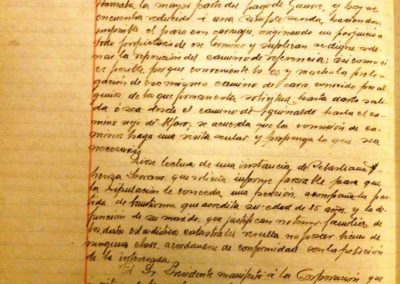 atravesaba la mayor parte del pago de Guarre, y hoy se
encuentra reducido á una simple senda, haciendose
imposible el paso con carruaje, originando un perjuicio a
todo propietario de ese termino y suplican se digne orde-
nar la reparación del camino de referencia; asi como si
es posible porque conveniente lo es y mucho la prolon-
gación de ese mismo camino del cara conocido por al-
gunos de los que forman esta solicitud, hasta darle sali-
da ó sea desde el camino de Aguinaldo hasta el ca-
mino viejo de Haro, se acuerda que la comisión de ca-
minos haga una visita ocular y proponga lo que sea
necesario.
Diose lectura de una instancia de
Lorano, que solicita informe favorable para que
la Diputación le conceda una pensión, acompaña la parti-
da de bautismo que acredita su edad de 85 años, y la de-
función de su marido, que justifican no tener familia, de
los datos estadisticos catastrales resulta no poseer bienes de
ninguna clase, acordandose de conformidad con la petición
de la interesada.
El Sr. Presidente manifestó á la Corporación que